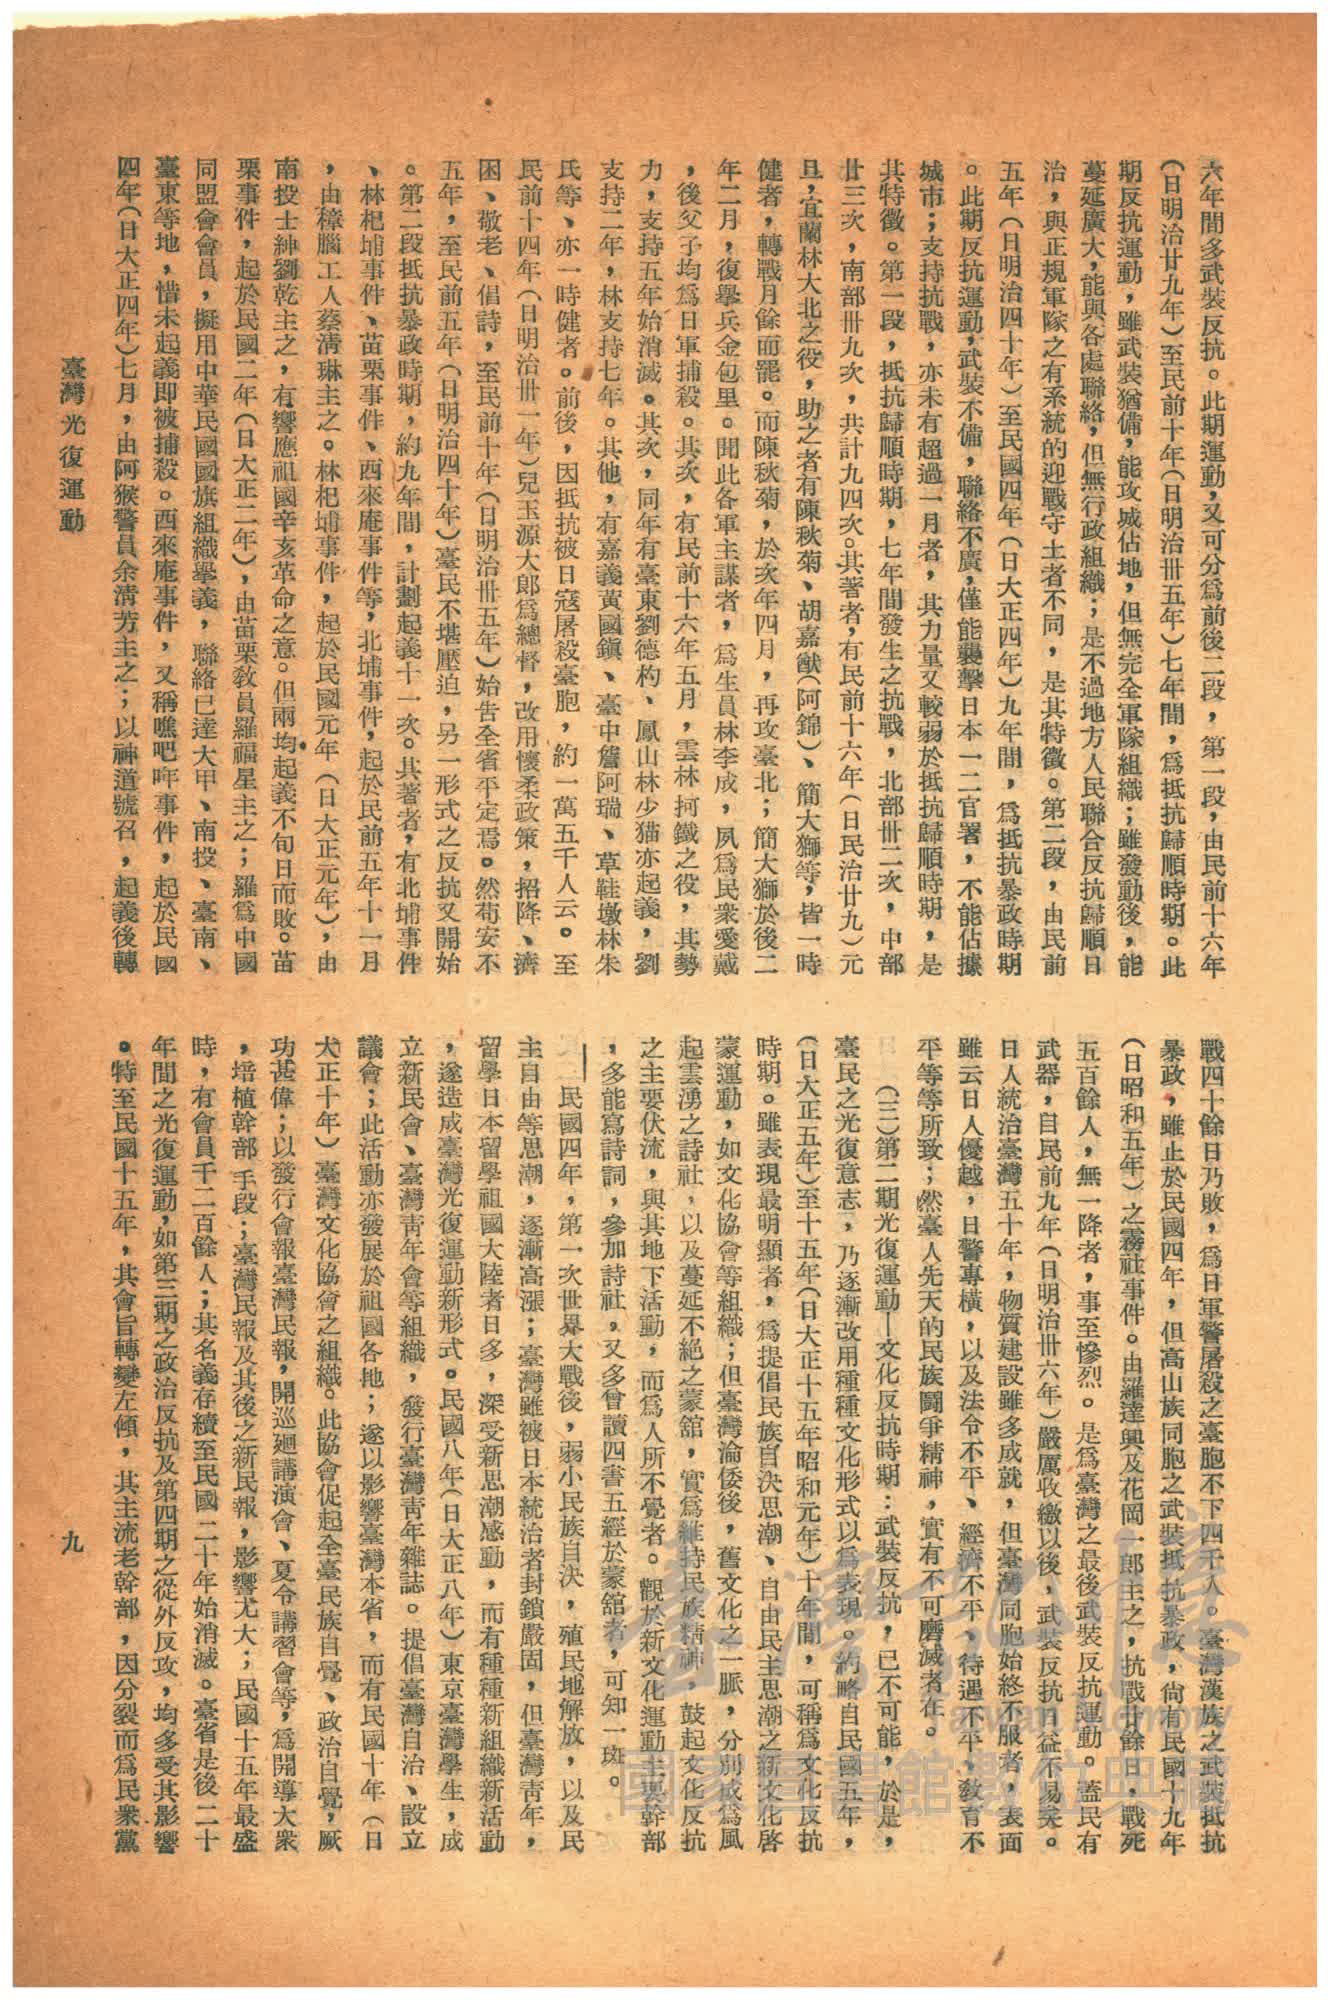 六年間多武裝反抗。此期運動，又可分爲前後二段，第一段，由民前十六年
（日明治廿九年）至民前十年（日明治卅五年）七年間，爲抵抗歸順時期。此
期反抗運動，雖武裝猶備，能攻城佔地，但無完全軍隊組織；雖發動後，能
蔓延廣大，能與各處聯絡，但無行政組織；是不過地方人民聯合反抗歸順日
治，與正規軍隊之有系統的迎戰守土者不同，是其特徵。第二段，由民前
五年（日明治四十年）至民國四年（日大正四年）九年間，爲抵抗暴政時期
。此期反抗運動，武裝不備，聯絡不廣，僅能襲擊日本一二官署，不能佔據
城市；支持抗戰，亦未有超過一月者，其力量又較弱於抵抗歸順時期，是
其特徵。第一段，抵抗歸順時期，七年間發生之抗戰，北部卅二次，中部
廿三次，南部卅九次，共計九四次。其著者，有民前十六年（日民治廿九）元
旦，宜蘭林大北之役，助之者有陳秋菊、胡嘉猷（阿錦）、簡大獅等，皆一時
健者，轉戰月餘而罷。而陳秋菊，於次年四月，再攻臺北；簡大獅於後二
年二月，復舉兵金包里。聞此各軍主謀者，爲生員林李成，夙爲民衆愛戴
，後父子均爲日軍捕殺。其次，有民前十六年五月，雲林柯鐵之役，其勢
力，支持五年始消滅。其次，同年有臺東劉德杓、鳳山林少猫亦起義，劉
支持二年，林支持七年。其他，有嘉義黃國鎭、臺中詹阿瑞、草鞋墩林朱
氏等、亦一時健者。前後，因抵抗被日寇屠殺臺胞，約一萬五千人云。至
民前十四年（日明治卅一年）兒玉源大郎爲總督，改用懷柔政策，招降、濟
困、敬老、倡詩，至民前十年（日明治卅五年）始告全省平定焉。然苟安不
五年，至民前五年（日明治四十年）臺民不堪壓迫，另一形式之反抗又開始
。第二段抵抗暴政時期，約九年間，計劃起義十一次。其著者，有北埔事件
、林杞埔事件、苗栗事件、西來庵事件等，北埔事件，起於民前五年十一月
，由樟腦工人蔡淸琳主之。林杞埔事件，起於民國元年（日大正元年），由
南投士紳劉乾主之，有響應祖國辛亥革命之意。但兩均起義不旬日而敗。苗
栗事件，起於民國二年（日大正二年），由苗栗敎員羅福星主之；羅爲中國
同盟會會員，擬用中華民國國旗組織舉義，聯絡已達大甲、南投、臺南、
臺東等地，惜未起義即被捕殺。西來庵事件，又稱噍吧哖事件，起於民國
四年（日大正四年）七月，由阿猴警員余清芳主之；以神道號召，起義後轉
戰四十餘日乃敗，爲日軍警屠殺之臺胞不下四千人。臺灣漢族之武裝抵抗
暴政，雖止於民國四年，但高山族同胞之武裝抵抗暴政，尙有民國十九年
（日昭和五年）之霧社事件。由羅達興及花岡一郎主之，抗戰廿餘日，戰死
五百餘人，無一降者，事至慘烈。是爲臺灣之最後武裝反抗運動。蓋民有
武器，自民前九年（日明治卅六年）嚴厲收繳以後，武裝反抗日益不易矣。
日人統治臺灣五十年，物質建設雖多成就，但臺灣同胞始終不服者，表面
雖云日人優越，日警專橫，以及法令不平、經濟不平，待遇不平，敎育不
平等等所致；然臺人先天的民族鬪爭精神，實有不可磨滅者在。
（三）第二期光復運動—文化反抗時期：武裝反抗，已不可能，於是，
臺民之光復意志，乃逐漸改用種種文化形式以爲表現。約略自民國五年，
（日大正五年）至十五年（日大正十五年昭和元年）十年間，可稱爲文化反抗
時期。雖表現最明顯者，爲提倡民族自決思潮、自由民主思潮之新文化啓
蒙運動，如文化協會等組織；但臺灣淪倭後，舊文化之一脈，分別成爲風
起雲湧之詩社，以及蔓延不絕之蒙舘，實爲維持民族精神，鼓起文化反抗
之主要伏流，與其地下活動，而爲人所不覺者。觀於新文化運動主要幹部
，多能寫詩詞，參加詩社，又多曾讀四書五經於蒙舘者，可知一斑。
民國四年，第一次世界大戰後，弱小民族自決，殖民地解放，以及民
主自由等思潮，逐漸高漲；臺灣雖被日本統治者封鎖嚴固，但臺灣青年，
留學日本留學祖國大陸者日多，深受新思潮感動，而有種種新組織新活動
，遂造成臺灣光復運動新形式。民國八年（日大正八年）東京臺灣學生，成
立新民會、臺灣靑年會等組織，發行臺灣靑年雜誌。提倡臺灣自治、設立
議會；此活動亦發展於祖國各地；遂以影響臺灣本省，而有民國十年（日
大正十年）臺灣文化協會之組織。此協會促起全臺民族自覺、政治自覺，厥
功甚偉；以發行會報臺灣民報，開巡廻講演會、夏令講習會等，爲開導大衆
，培植幹部手段；臺灣民報及其後之新民報，影響尤大；民國十五年最盛
時，有會員千二百餘人；其名義存續至民國二十年始消滅。臺省是後二十
年間之光復運動，如第三期之政治反抗及第四期之從外反攻，均多受其影響
。特至民國十五年，其會旨轉變左傾，其主流老幹部，因分裂而爲民衆黨
臺灣光復運動
九
臺灣記憶
Taiwan Memory
國家圖書館數位典藏